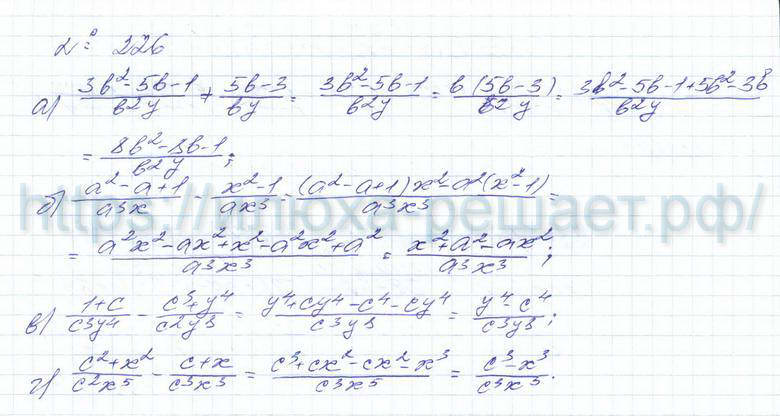 № 226
а) (3b²-5b-1)/(b²y) + (5b-3)/(by) = (3b²-5b-1)/(b²y) = (b(5b-3))/(b²y) = (3b²-5b-1+5b²-3b)/(b²y)
= (8b²-8b-1)/(b²y);
б) (a²-a+1)/(a³x) - (x²-1)/(ax³) = ((a²-a+1)x²-a²(x²-1))/(a³x³) =
= (a²x²-ax²+x²-a²x²+a²)/(a³x³) = (x²+a²-ax²)/(a³x³);
в) (1+c)/(c³y⁴) - (c³+y⁴)/(c²y⁸) = (y⁴+cy⁴-c⁴-cy⁴)/(c³y⁸) = (y⁴-c⁴)/(c³y⁸);
г) (c²+x²)/(c²x⁵) - (c+x)/(c³x³) = (c³+cx²-cx²-x³)/(c³x⁵) = (c³-x³)/(c³x⁵).
https://плюха-решает.рф/